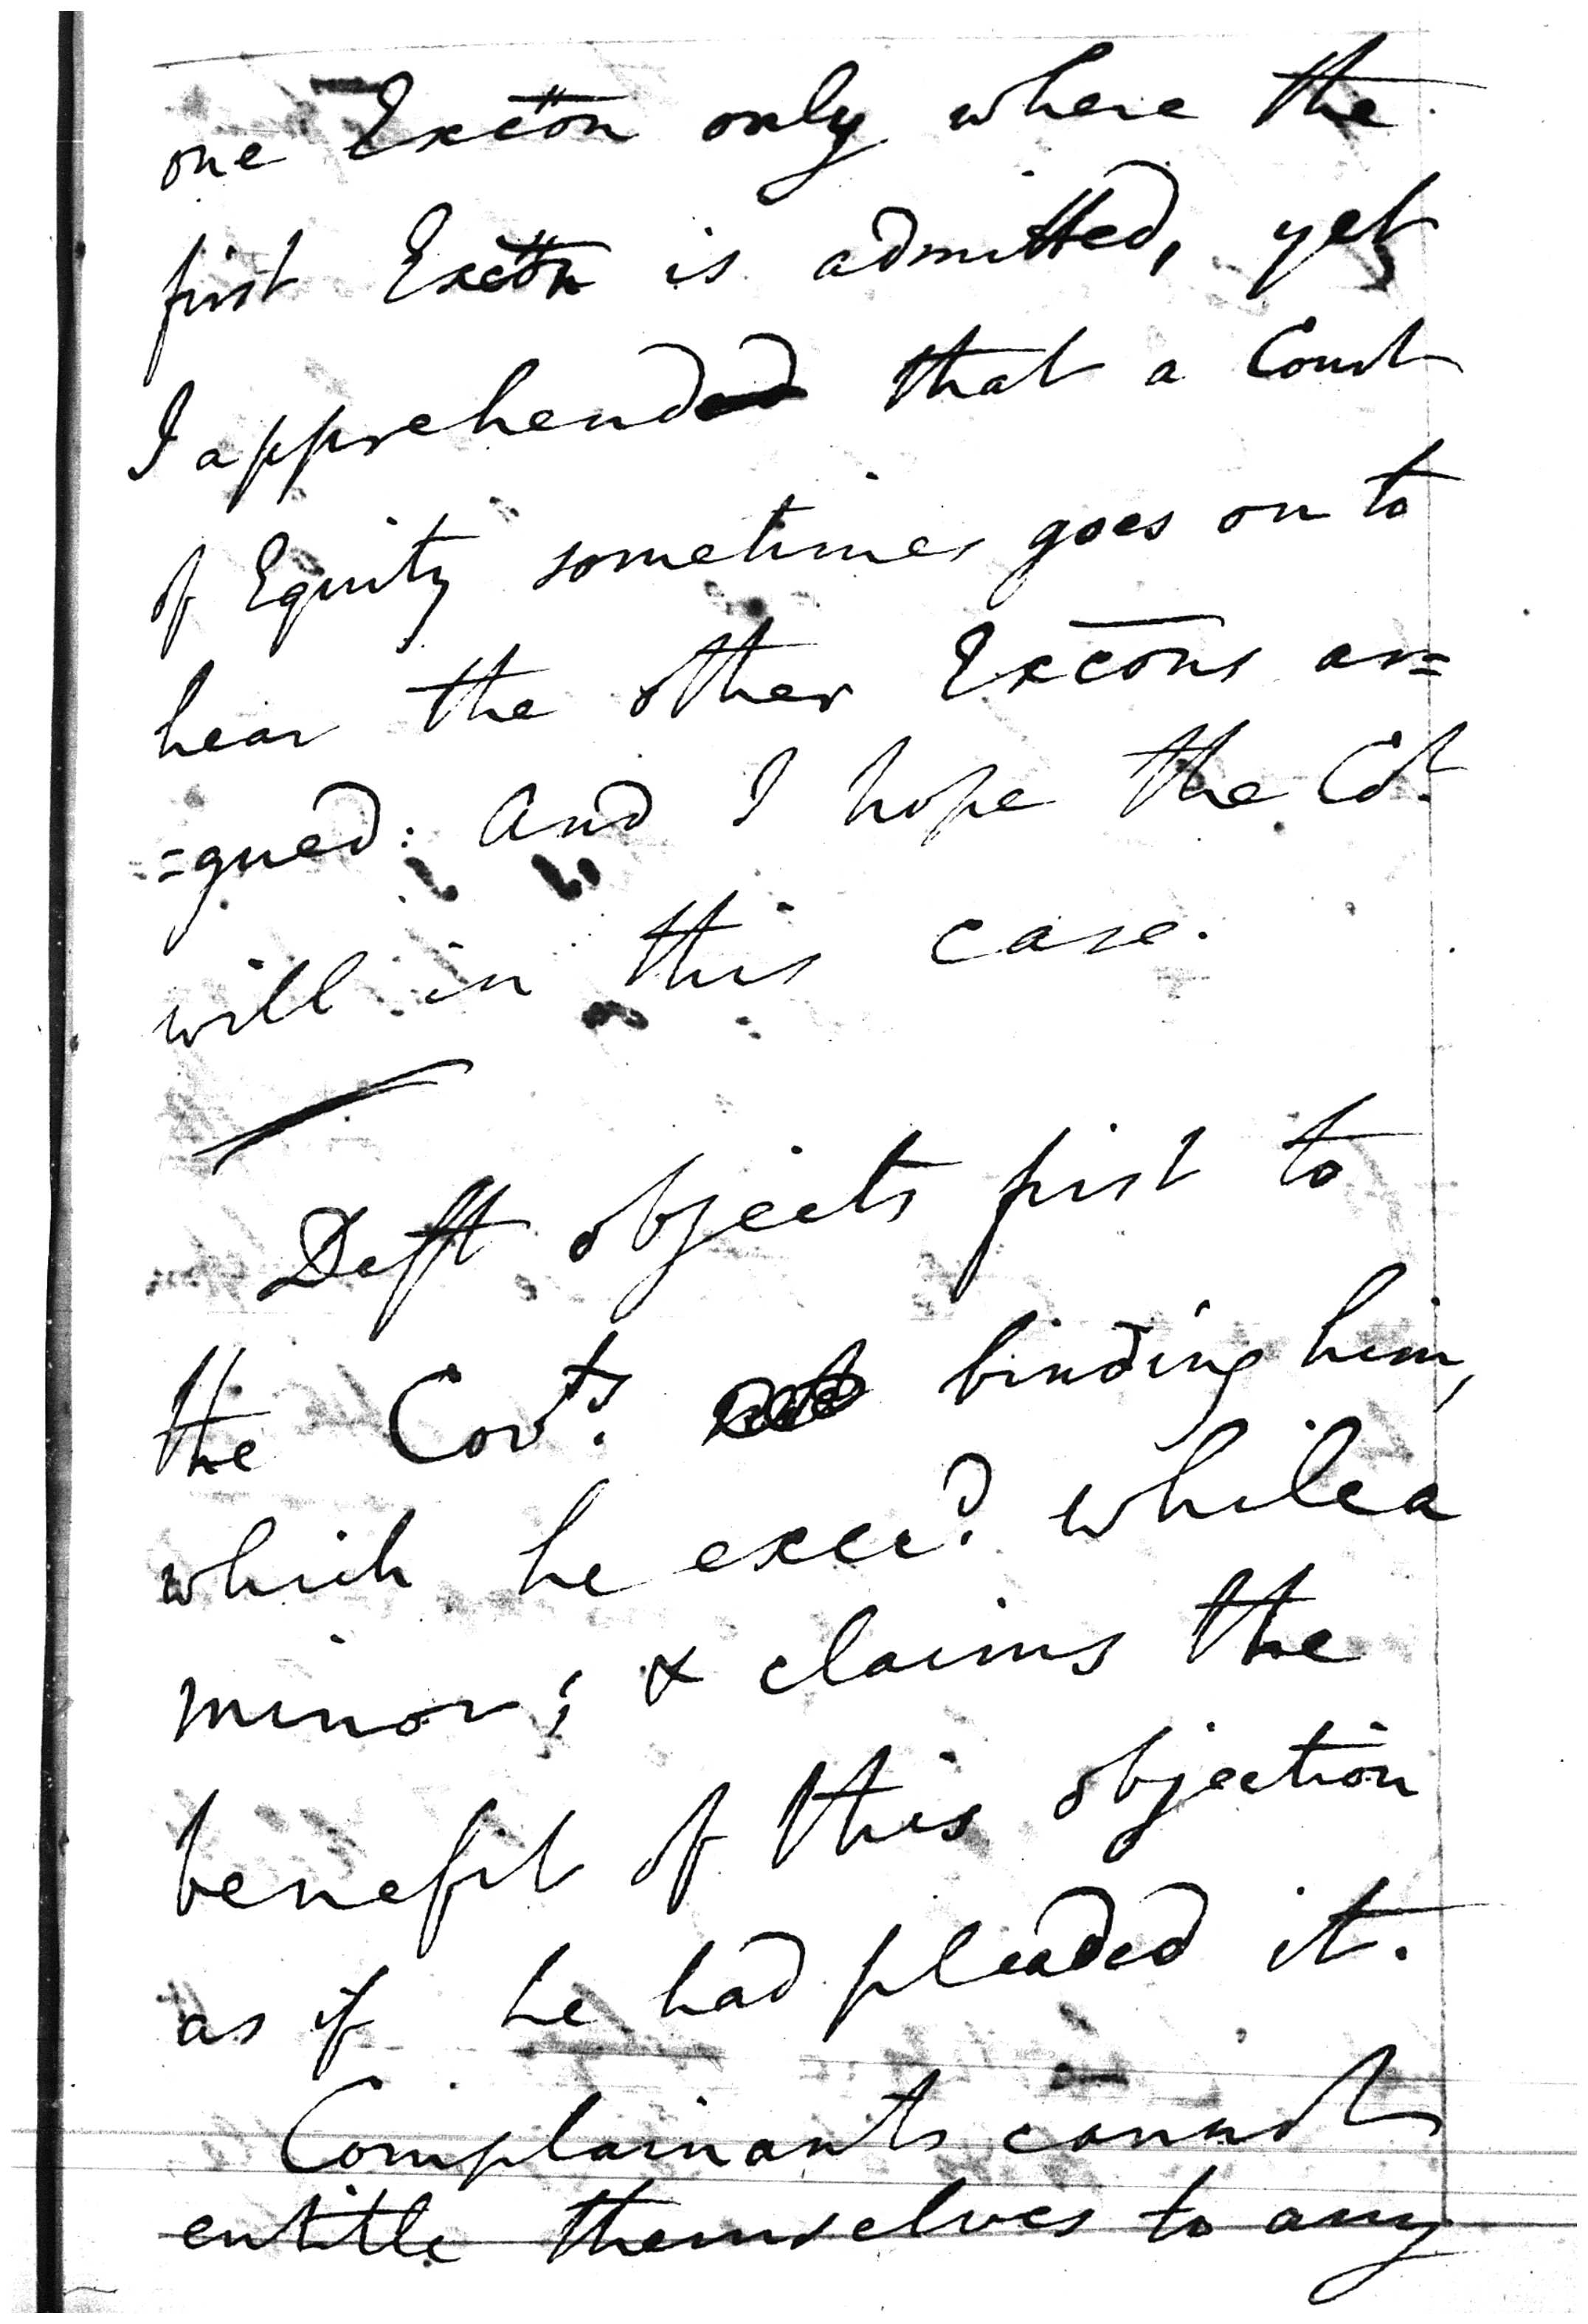 one Excōn only where the
first Excōn is admitted, yet
I apprehend that a Court
of Equity sometimes goes on to
hear the other Excōns ar=
=gued: And I hope the Cot.
will in this case.
Deft objects first to
the Covts. binding him,
which he execd. while a
minor; & claims the
benefit of this objection
as if he had pleaded it.
Complainants cannot
entitle themselves to any